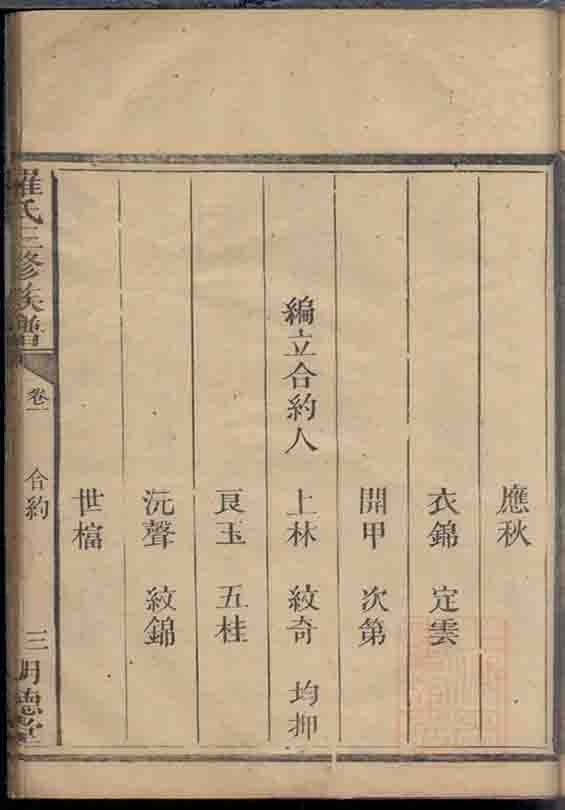 應秋
衣錦 定雲
開甲 次第
編立合約人 上林 紋奇 均押
良玉 五桂
沅聲 紋錦
世檔
羅氏三修族譜 卷一 合約 三 明德堂